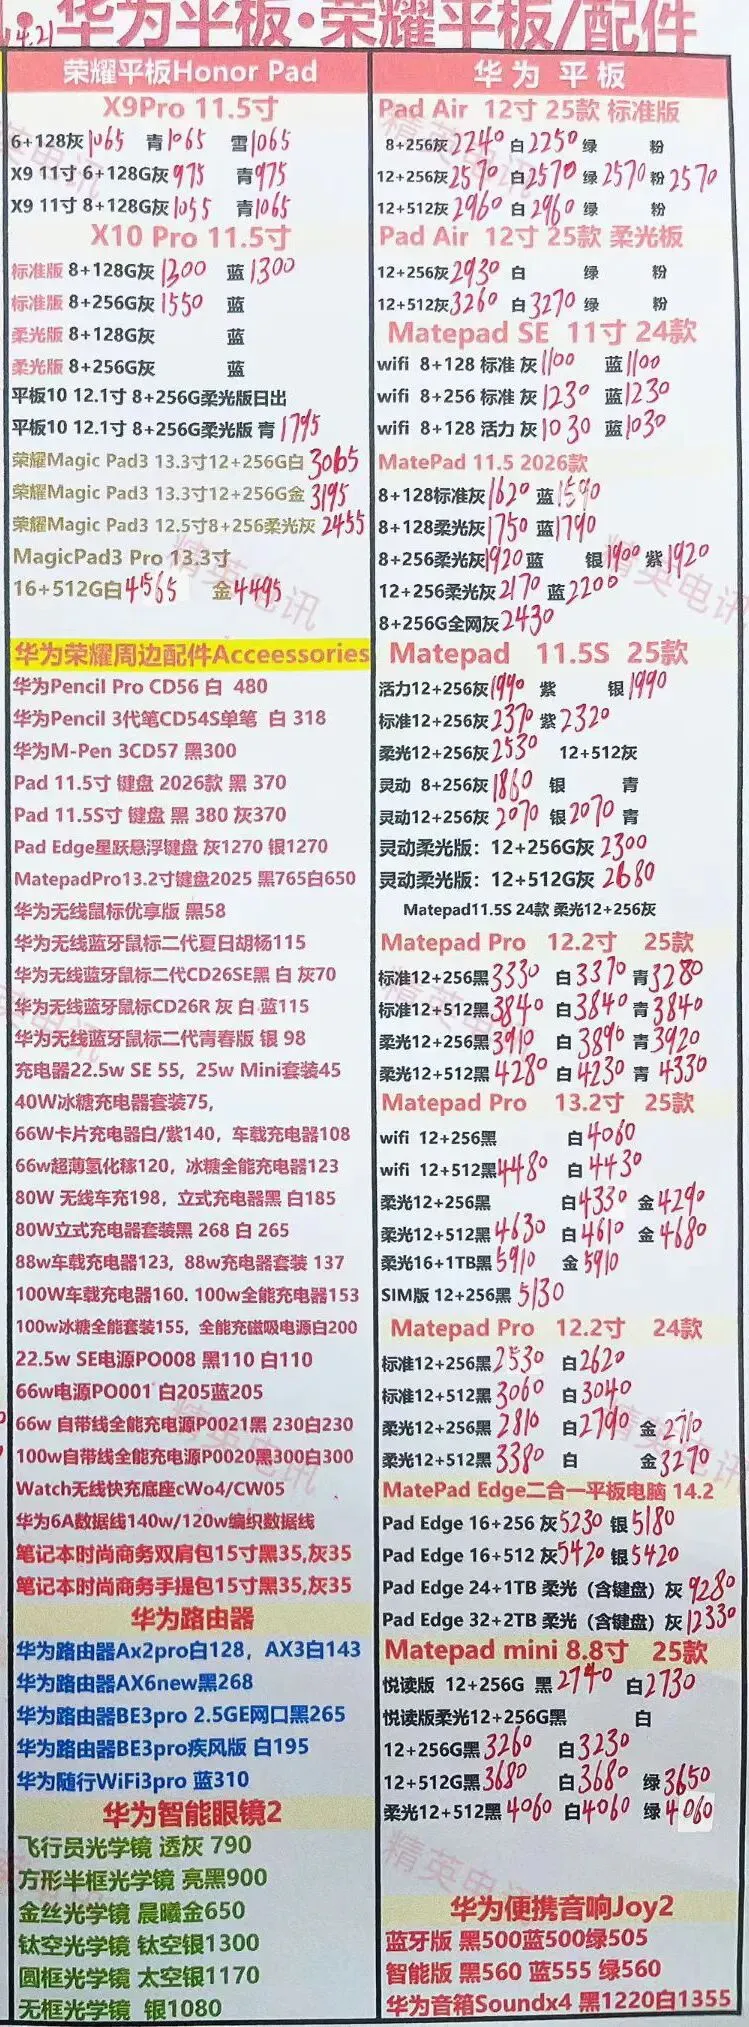 4.21 华为平板·荣耀平板/配件
荣耀平板Honor Pad
X9Pro 11.5寸
6+128灰1065 青1065 雪1065
X9 11寸 6+128G灰975 青975
X9 11寸 8+128G灰1055 青1065
X10 Pro 11.5寸
标准版 8+128G灰1300 蓝1300
标准版 8+256G灰1550 蓝
柔光版 8+128G灰 蓝
柔光版 8+256G灰 蓝
平板10 12.1寸 8+256G柔光版日出
平板10 12.1寸 8+256G柔光版 青1795
荣耀Magic Pad3 13.3寸12+256G白3065
荣耀Magic Pad3 13.3寸12+256G金3195
荣耀Magic Pad3 12.5寸8+256柔光灰2455
MagicPad3 Pro 13.3寸
16+512G白4565 金4495
华为荣耀周边配件Acceessories
华为Pencil Pro CD56 白 480
华为Pencil 3代笔CD54S单笔 白 318
华为M-Pen 3CD57 黑300
Pad 11.5寸 键盘 2026款 黑 370
Pad 11.5S寸 键盘 黑 380 灰370
Pad Edge星跃悬浮键盘 灰1270 银1270
MatepadPro13.2寸键盘2025 黑765白650
华为无线鼠标优享版 黑58
华为无线蓝牙鼠标二代夏日胡杨115
华为无线蓝牙鼠标二代CD26SE黑 白 灰70
华为无线蓝牙鼠标CD26R 灰 白 蓝115
华为无线蓝牙鼠标二代青春版 银 98
充电器22.5w SE 55, 25w Mini套装45
40W冰糖充电器套装75,
66W卡片充电器白/紫140, 车载充电器108
66w超薄氢化稼120, 冰糖全能充电器123
80W 无线车充198, 立式充电器黑 白185
80W立式充电器套装黑 268 白 265
88w车载充电器123, 88w充电器套装 137
100W车载充电器160. 100w全能充电器153
100w冰糖全能套装155, 全能充磁吸电源白200
22.5w SE电源PO008 黑110 白110
66w电源PO001 白205蓝205
66w 自带线全能充电源P0021黑 230白230
100w自带线全能充电源P0020黑300白300
Watch无线快充底座cWo4/CW05
华为6A数据线140w/120w编织数据线
笔记本时尚商务双肩包15寸黑35,灰35
笔记本时尚商务手提包15寸黑35,灰35
华为路由器
华为路由器Ax2pro白128, AX3白143
华为路由器AX6new黑268
华为路由器BE3pro 2.5GE网口黑265
华为路由器BE3pro疾风版 白195
华为随行WiFi3pro 蓝310
华为智能眼镜2
飞行员光学镜 透灰 790
方形半框光学镜 亮黑900
金丝光学镜 晨曦金650
钛空光学镜 钛空银1300
圆框光学镜 太空银1170
无框光学镜 银1080
华为 平板
Pad Air 12寸 25款 标准版
8+256灰2240 白2250 绿 粉
12+256灰2570 白2570 绿2570 粉2570
12+512灰2960 白2960 绿 粉
Pad Air 12寸 25款 柔光板
12+256灰2930 白 绿 粉
12+512灰3260 白3270 绿 粉
Matepad SE 11寸 24款
wifi 8+128 标准 灰1100 蓝1100
wifi 8+256 标准 灰1230 蓝1230
wifi 8+128 活力 灰1030 蓝1030
MatePad 11.5 2026款
8+128标准灰1620 蓝1590
8+128柔光灰1750 蓝1790
8+256柔光灰1920 蓝 银1900 紫1920
12+256柔光灰2170 蓝2200
8+256G全网灰2430
Matepad 11.5S 25款
活力12+256灰1990 紫 银1990
标准12+256灰2370 紫2320
柔光12+256灰2530 12+512灰
灵动 8+256灰1860 银 青
灵动12+256灰2070 银2070 青
灵动柔光版: 12+256G灰2300
灵动柔光版: 12+512G灰2680
Matepad11.5S 24款 柔光12+256灰
Matepad Pro 12.2寸 25款
标准12+256黑3330 白3370 青3280
标准12+512黑3840 白3840 青3840
柔光12+256黑3910 白3890 青3920
柔光12+512黑4280 白4230 青4330
Matepad Pro 13.2寸 25款
wifi 12+256黑 白4060
wifi 12+512黑4480 白4430
柔光12+256黑 白4330 金4290
柔光12+512黑4630 白4610 金4680
柔光16+1TB黑5910 金5910
SIM版 12+256黑5130
Matepad Pro 12.2寸 24款
标准12+256黑2530 白2620
标准12+512黑3060 白3040
柔光12+256黑2810 白2790 金2710
柔光12+512黑3380 白 金3270
MatePad Edge二合一平板电脑 14.2
Pad Edge 16+256 灰5230 银5180
Pad Edge 16+512 灰5420 银5420
Pad Edge 24+1TB 柔光（含键盘）灰9280
Pad Edge 32+2TB 柔光（含键盘）灰12330
Matepad mini 8.8寸 25款
悦读版 12+256G 黑2740 白2730
悦读版柔光12+256G黑 白
12+256G黑3260 白3230
12+512G黑3680 白3680 绿3650
柔光12+512黑4060 白4060 绿4060
华为便携音响Joy2
蓝牙版 黑500蓝500绿505
智能版 黑560 蓝555 绿560
华为音箱Soundx4 黑1220白1355
精英电讯